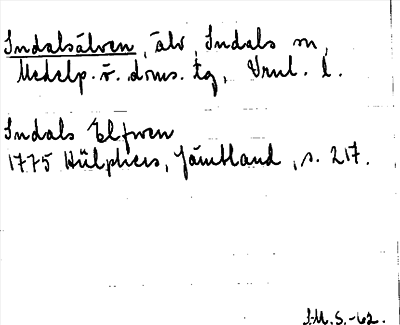 Indalsälven, älv, Indals sn,
Medelp. v. doms. tg, Vnl. l.
Indals Elfwen
1775 Hülphers, Jämtland, s. 217.
I.M.S.-62.